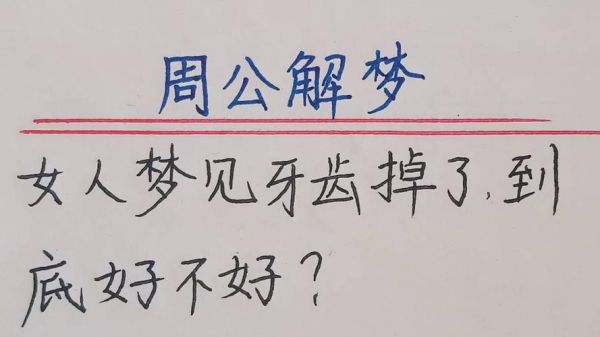 周公解梦
女人梦见牙齿掉了,到
底好不好?